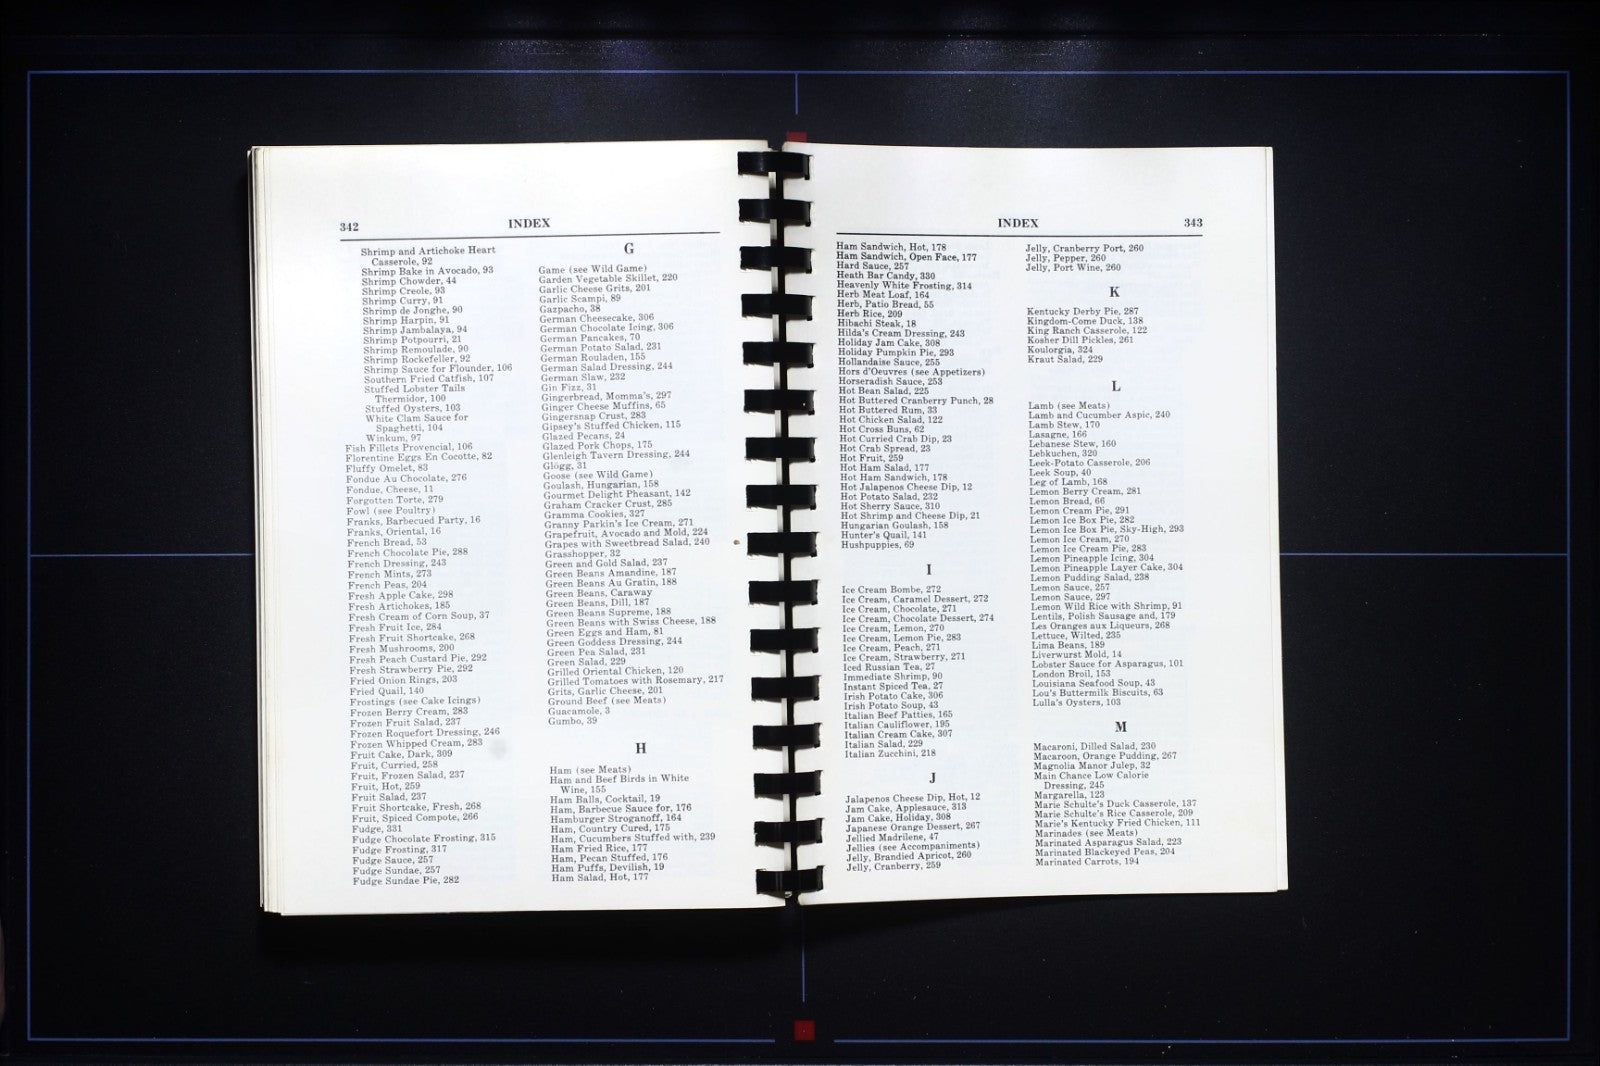 342
INDEX
Shrimp and Artichoke Heart
Casserole, 92
Shrimp Bake in Avocado, 93
Shrimp Chowder, 44
Shrimp Creole, 93
Shrimp Curry, 91
Shrimp de Jonghe, 90
Shrimp Harpin, 91
Shrimp Jambalaya, 94
Shrimp Potpourri, 21
Shrimp Remoulade, 90
Shrimp Rockefeller, 92
Shrimp Sauce for Flounder, 106
Southern Fried Catfish, 107
Stuffed Lobster Tails
Thermidor, 100
Stuffed Oysters, 103
White Clam Sauce for
Spaghetti, 104
Winkum, 97
Fish Fillets Provencial, 106
Florentine Eggs En Cocotte, 82
Fluffy Omelet, 83
Fondue Au Chocolate, 276
Fondue, Cheese, 11
Forgotten Torte, 279
Fowl (see Poultry)
Franks, Barbecued Party, 16
Franks, Oriental, 16
French Bread, 53
French Chocolate Pie, 288
French Dressing, 243
French Mints, 273
French Peas, 204
Fresh Apple Cake, 298
Fresh Artichokes, 185
Fresh Cream of Corn Soup, 37
Fresh Fruit Ice, 284
Fresh Fruit Shortcake, 268
Fresh Mushrooms, 200
Fresh Peach Custard Pie, 292
Fresh Strawberry Pie, 292
Fried Onion Rings, 203
Fried Quail, 140
Frostings (see Cake Icings)
Frozen Berry Cream, 283
Frozen Fruit Salad, 237
Frozen Roquefort Dressing, 246
Frozen Whipped Cream, 283
Fruit Cake, Dark, 309
Fruit, Curried, 258
Fruit, Frozen Salad, 237
Fruit, Hot, 259
Fruit Salad, 237
Fruit Shortcake, Fresh, 268
Fruit, Spiced Compote, 266
Fudge, 331
Fudge Chocolate Frosting, 315
Fudge Frosting, 317
Fudge Sauce, 257
Fudge Sundae, 257
Fudge Sundae Pie, 282
G
Game (see Wild Game)
Garden Vegetable Skillet, 220
Garlic Cheese Grits, 201
Garlic Scampi, 89
Gazpacho, 38
German Cheesecake, 306
German Chocolate Icing, 306
German Pancakes, 70
German Potato Salad, 231
German Rouladen, 155
German Salad Dressing, 244
German Slaw, 232
Gin Fizz, 31
Gingerbread, Momma's, 297
Ginger Cheese Muffins, 65
Gingersnap Crust, 283
Gipsey's Stuffed Chicken, 115
Glazed Pecans, 24
Glazed Pork Chops, 175
Glenleigh Tavern Dressing, 244
Glögg, 31
Goose (see Wild Game)
Goulash, Hungarian, 158
Gourmet Delight Pheasant, 142
Graham Cracker Crust, 285
Gramma Cookies, 327
Granny Parkin's Ice Cream, 271
Grapefruit, Avocado and Mold, 224
Grapes with Sweetbread Salad, 240
Grasshopper, 32
Green and Gold Salad, 237
Green Beans Amandine, 187
Green Beans Au Gratin, 188
Green Beans, Caraway
Green Beans, Dill, 187
Green Beans Supreme, 188
Green Beans with Swiss Cheese, 188
Green Eggs and Ham, 81
Green Goddess Dressing, 244
Green Pea Salad, 231
Green Salad, 229
Grilled Oriental Chicken, 120
Grilled Tomatoes with Rosemary, 217
Grits, Garlic Cheese, 201
Ground Beef (see Meats)
Guacamole, 3
Gumbo, 39
H
Ham (see Meats)
Ham and Beef Birds in White
Wine, 155
Ham Balls, Cocktail, 19
Ham, Barbecue Sauce for, 176
Hamburger Stroganoff, 164
Ham, Country Cured, 175
Ham, Cucumbers Stuffed with, 239
Ham Fried Rice, 177
Ham, Pecan Stuffed, 176
Ham Puffs, Devilish, 19
Ham Salad, Hot, 177
INDEX
343
Ham Sandwich, Hot, 178
Ham Sandwich, Open Face, 177
Hard Sauce, 257
Heath Bar Candy, 330
Heavenly White Frosting, 314
Herb Meat Loaf, 164
Herb, Patio Bread, 55
Herb Rice, 209
Hibachi Steak, 18
Hilda's Cream Dressing, 243
Holiday Jam Cake, 308
Holiday Pumpkin Pie, 293
Hollandaise Sauce, 255
Hors d'Oeuvres (see Appetizers)
Horseradish Sauce, 253
Hot Bean Salad, 225
Hot Buttered Cranberry Punch, 28
Hot Buttered Rum, 33
Hot Chicken Salad, 122
Hot Cross Buns, 62
Hot Curried Crab Dip, 23
Hot Crab Spread, 23
Hot Fruit, 259
Hot Ham Salad, 177
Hot Ham Sandwich, 178
Hot Jalapenos Cheese Dip, 12
Hot Potato Salad, 232
Hot Sherry Sauce, 310
Hot Shrimp and Cheese Dip, 21
Hungarian Goulash, 158
Hunter's Quail, 141
Hushpuppies, 69
I
Ice Cream Bombe, 272
Ice Cream, Caramel Dessert, 272
Ice Cream, Chocolate, 271
Ice Cream, Chocolate Dessert, 274
Ice Cream, Lemon, 270
Ice Cream, Lemon Pie, 283
Ice Cream, Peach, 271
Ice Cream, Strawberry, 271
Iced Russian Tea, 27
Immediate Shrimp, 90
Instant Spiced Tea, 27
Irish Potato Cake, 306
Irish Potato Soup, 43
Italian Beef Patties, 165
Italian Cauliflower, 195
Italian Cream Cake, 307
Italian Salad, 229
Italian Zucchini, 218
J
Jalapenos Cheese Dip, Hot, 12
Jam Cake, Applesauce, 313
Jam Cake, Holiday, 308
Japanese Orange Dessert, 267
Jellied Madrilene, 47
Jellies (see Accompaniments)
Jelly, Brandied Apricot, 260
Jelly, Cranberry, 259
Jelly, Cranberry Port, 260
Jelly, Pepper, 260
Jelly, Port Wine, 260
K
Kentucky Derby Pie, 287
Kingdom-Come Duck, 138
King Ranch Casserole, 122
Kosher Dill Pickles, 261
Koulorgia, 324
Kraut Salad, 229
L
Lamb (see Meats)
Lamb and Cucumber Aspic, 240
Lamb Stew, 170
Lasagne, 166
Lebanese Stew, 160
Lebkuchen, 320
Leek-Potato Casserole, 206
Leek Soup, 40
Leg of Lamb, 168
Lemon Berry Cream, 281
Lemon Bread, 66
Lemon Cream Pie, 291
Lemon Ice Box Pie, 282
Lemon Ice Box Pie, Sky-High, 293
Lemon Ice Cream, 270
Lemon Ice Cream Pie, 283
Lemon Pineapple Icing, 304
Lemon Pineapple Layer Cake, 304
Lemon Pudding Salad, 238
Lemon Sauce, 257
Lemon Sauce, 297
Lemon Wild Rice with Shrimp, 91
Lentils, Polish Sausage and, 179
Les Oranges aux Liqueurs, 268
Lettuce, Wilted, 235
Lima Beans, 189
Liverwurst Mold, 14
Lobster Sauce for Asparagus, 101
London Broil, 153
Louisiana Seafood Soup, 43
Lou's Buttermilk Biscuits, 63
Lulla's Oysters, 103
M
Macaroni, Dilled Salad, 230
Macaroon, Orange Pudding, 267
Magnolia Manor Julep, 32
Main Chance Low Calorie
Dressing, 245
Margarella, 123
Marie Schulte's Duck Casserole, 137
Marie Schulte's Rice Casserole, 209
Marie's Kentucky Fried Chicken, 111
Marinades (see Meats)
Marinated Asparagus Salad, 223
Marinated Blackeyed Peas, 204
Marinated Carrots, 194